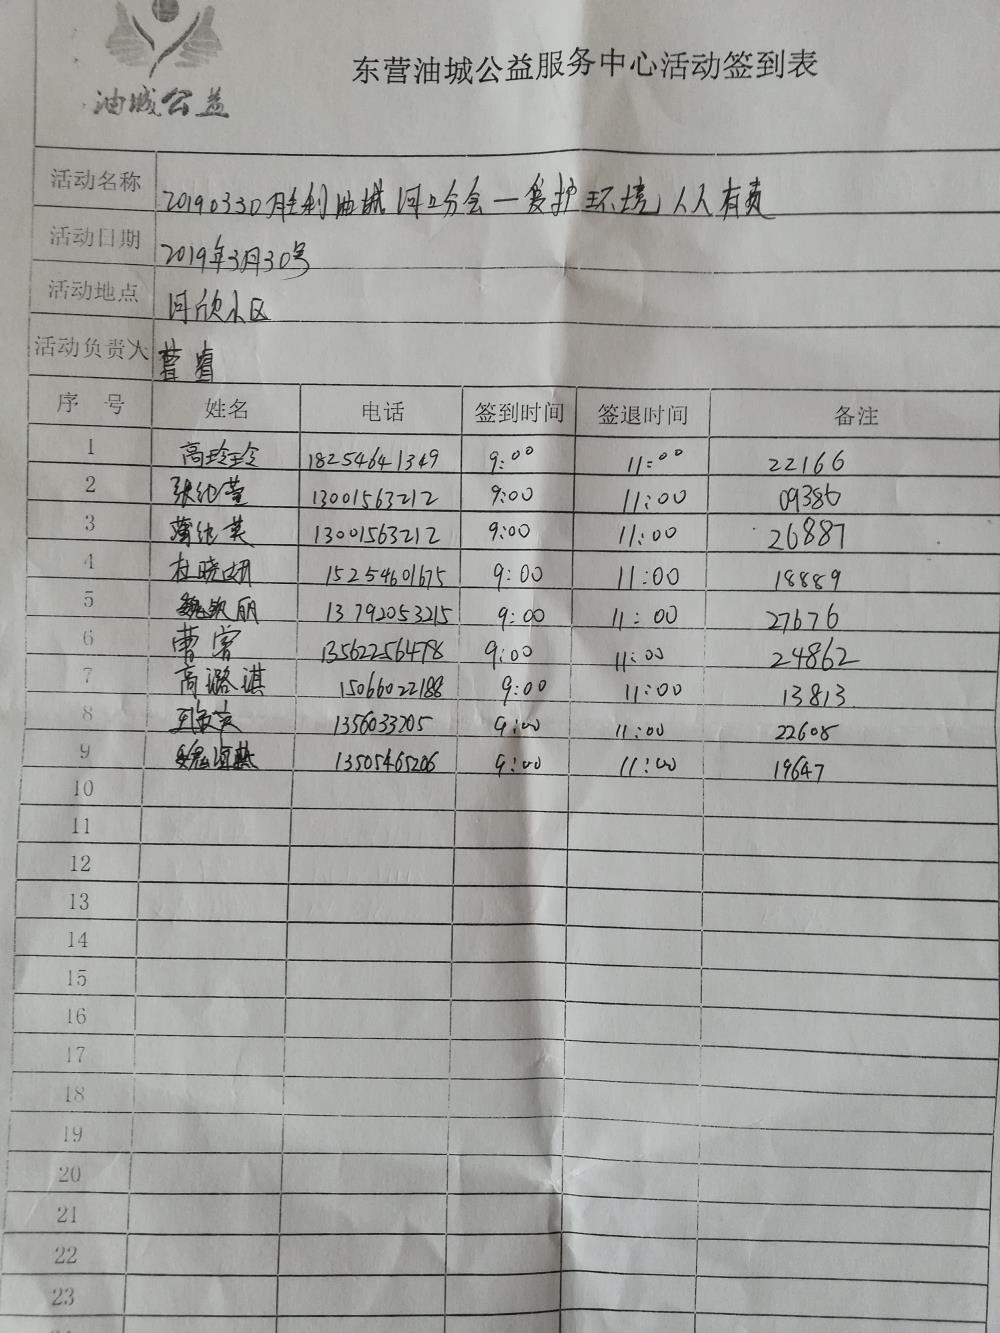 东营油城公益服务中心活动签到表
油城公益
活动名称 20190330胜利油城河口分会一爱护环境,人人有责
活动日期 2019年3月30号
活动地点 河欣小区
活动负责人
序 号 姓名 电话 签到时间 签退时间 备注
1 高玲玲 18254641349 9:00 11:00 22166
2 13001563212 9:00 11:00 09386
3 13001563212 9:00 11:00 26887
4 杜晓娟 15254601675 9:00 11:00 18889
5 丽 13792053215 9:00 11:00 27676
6 曹 13562256478 9:00 11:00 24862
7 高璐淇 15066022188 9:00 11:00 13813
8 1356033205 9:00 11:00 22608
9 13505465206 9:00 11:00 19647
10
11
12
13
14
15
16
17
18
19
20
21
22
23